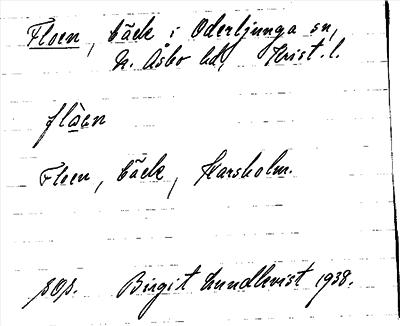 Floen, bäck i Oderljunga sn,
N. Åsbo hd, Krist. l.
flàen
Fleen, bäck, Karsholm.
sOp. Birgit Lundkvist 1938.